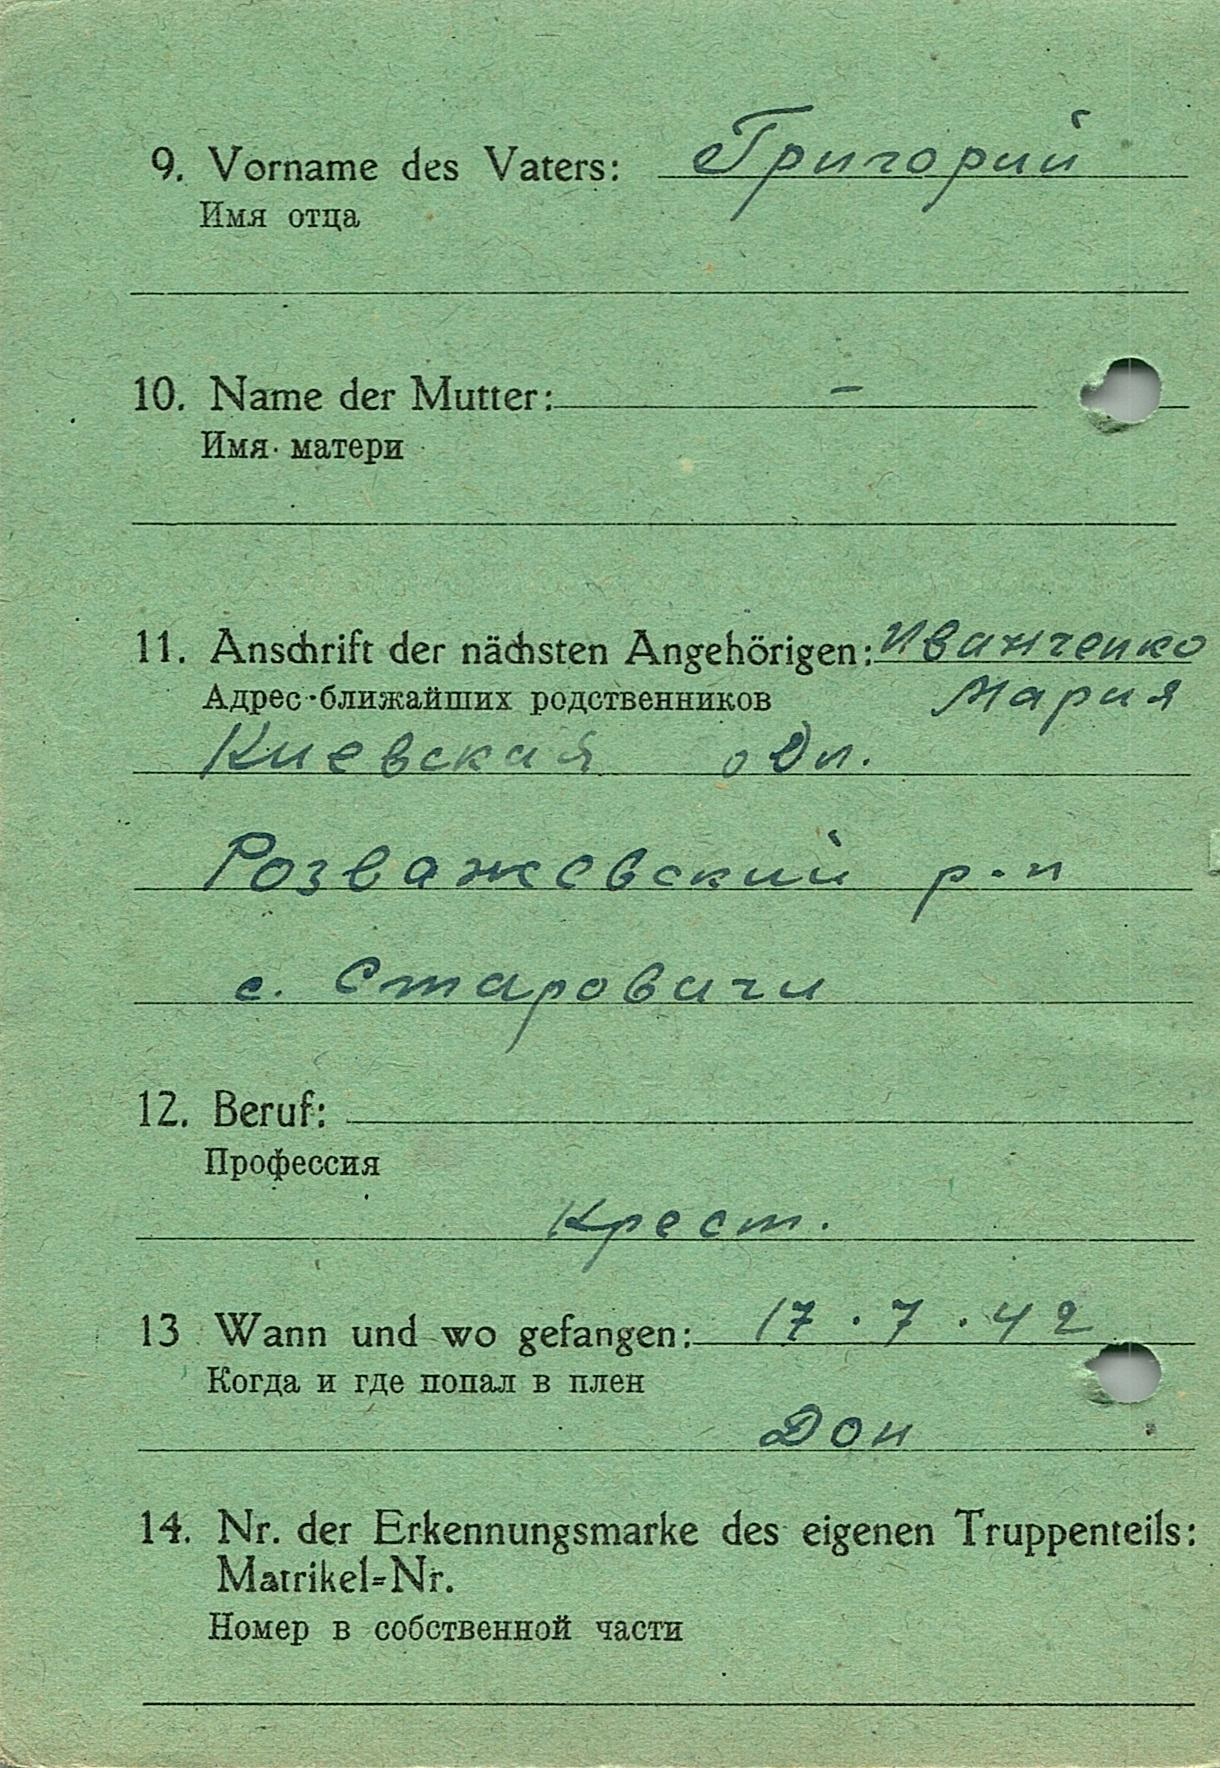 9. Vorname des Vaters: Григорий
Имя отца
10. Name der Mutter: –
Имя матери
11. Anschrift der nächsten Angehörigen: Иванченко
Адрес ближайших родственников Мария
Киевская обл.
Розважевский р-н
с. Старовичи
12. Beruf:
Профессия
Крест.
13 Wann und wo gefangen: 17.7.42
Когда и где попал в плен
Дон
14. Nr. der Erkennungsmarke des eigenen Truppenteils:
Matrikel=Nr.
Номер в собственной части